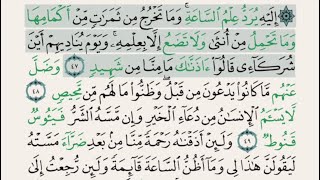 إِلَيْهِ يُرَدُّ عِلْمُ ٱلسَّاعَةِ ۚ وَمَا تَخْرُجُ مِن ثَمَرَٰتٍ مِّنْ أَكْمَامِهَا
وَمَا تَحْمِلُ مِنْ أُنثَىٰ وَلَا تَضَعُ إِلَّا بِعِلْمِهِۦ ۚ وَيَوْمَ يُنَادِيهِمْ أَيْنَ
شُرَكَآءِى قَالُوٓا۟ ءَاذَنَّٰكَ مَا مِنَّا مِن شَهِيدٍ ٤٧ وَضَلَّ
عَنْهُم مَّا كَانُوا۟ يَدْعُونَ مِن قَبْلُ ۖ وَظَنُّوا۟ مَا لَهُم مِّن مَّحِيصٍ ٤٨
لَّا يَسْـَٔمُ ٱلْإِنسَٰنُ مِن دُعَآءِ ٱلْخَيْرِ وَإِن مَّسَّهُ ٱلشَّرُّ فَيَـُٔوسٌ
قَنُوطٌ ٤٩ وَلَئِنْ أَذَقْنَٰهُ رَحْمَةً مِّنَّا مِنۢ بَعْدِ ضَرَّآءَ مَسَّتْهُ
لَيَقُولَنَّ هَٰذَا لِى وَمَآ أَظُنُّ ٱلسَّاعَةَ قَآئِمَةً وَلَئِن رُّجِعْتُ إِلَىٰ